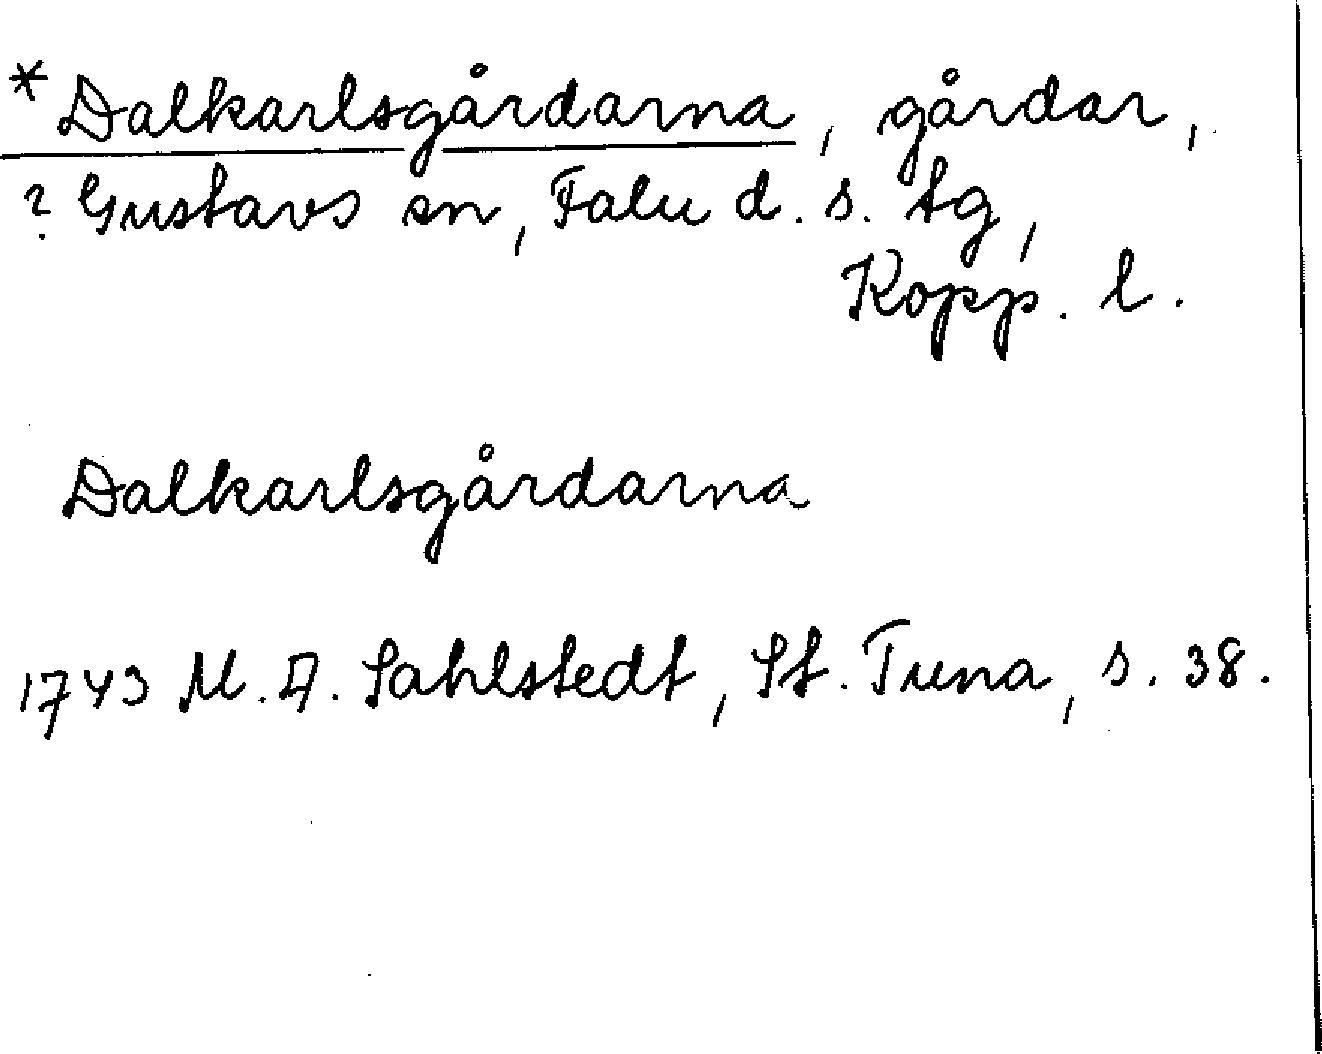 *Dalkarlsgårdarna, gårdar,
? Gustavs sn, Falu d. s. tg,
Kopp. l.
Dalkarlsgårdarna
1743 M. A. Sahlstedt, St. Tuna, s. 38.